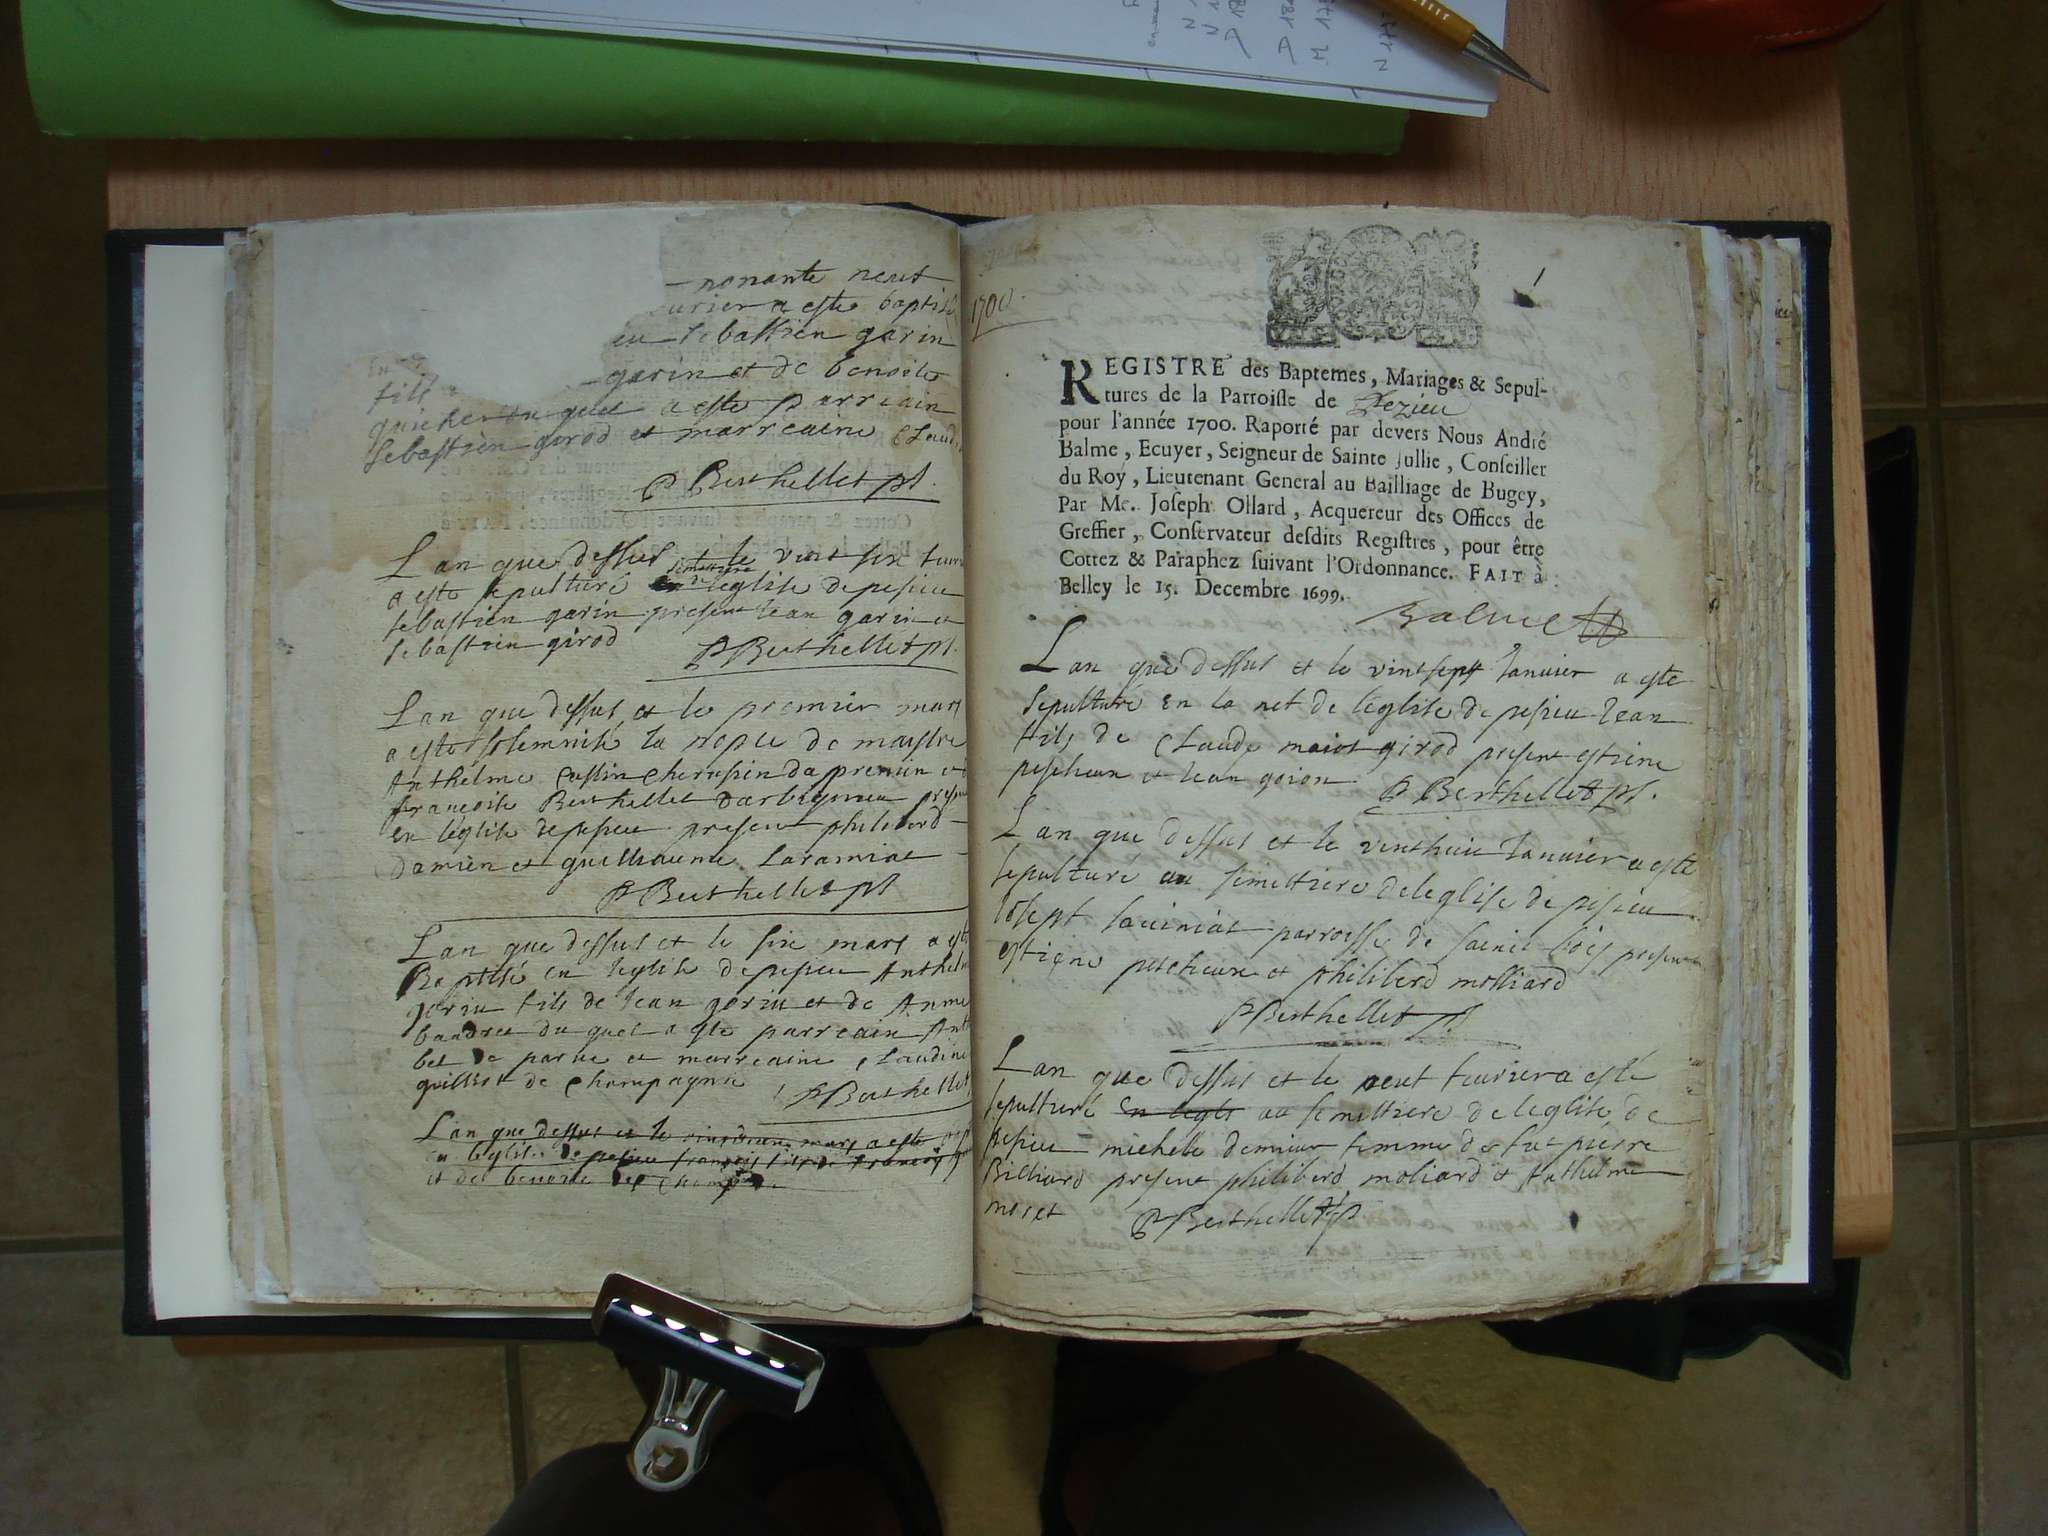 nonante neuf
urier a este baptisé
eu sebastien garin
fils garin et de benoite
du quel a este parrain
sebastien girod et marraine Claud
P Berthellet pt.
Lan que dessus et le vint six
a este sepulturé semettiere de leglise de pesieu
sebastien garin present Jean garin et
sebastien girod P Berthellet pt.
Lan que dessus et le premier mars
a este solemnisé la nopce de maistre
Anthelme Cussin Cherussin da premin et
françoise Berthellet darbignieu
en léglise de pesieu present philiberd
damien et guilliaume Laramiat
P Berthellet pt
Lan que dessus et le six mars a este
Baptisé en leglise de pesieu Anthelm
garin fils de Jean garin et de Anne
baudret du quel a este parrain Anth
bet de parve et marraine Claudine
guilliot de Champagne
P Berthellet
Lan que dessus et le mars a este
en leglise de pesieu françois fils de francois
et de benoite
1700.
1
REGISTRE des Baptemes, Mariages & Sepul-
tures de la Parroisse de Pezieu
pour l'année 1700. Raporté par devers Nous André
Balme, Ecuyer, Seigneur de Sainte Jullie, Conseiller
du Roy, Lieutenant General au Bailliage de Bugey,
Par Me. Joseph Ollard, Acquereur des Offices de
Greffier, Conservateur desdits Registres, pour être
Cottez & Paraphez suivant l'Ordonnance. FAIT à
Belley le 15. Decembre 1699.
Balme
Lan que dessus et le vintsept Januier a este
sepulturé en la nef de leglise de pesieu Jean
fils de Claude maiot girod present estiene
pescheur et Jean goion P Berthellet pt.
Lan que dessus et le vinthuit Januier a este
sepulturé au simettiere de leglise de pesieu
Josept sauiniat parroisse de sainct bois present
estiene pescheur et philiberd molliard
P Berthellet pt
Lan que dessus et le neuf feurier a este
sepulturé en legls au semettiere de leglise de
pesieu michelle demieur femme de fut pierre
Billiard present philiberd moliard et Anthelme
moret P Berthellet pt